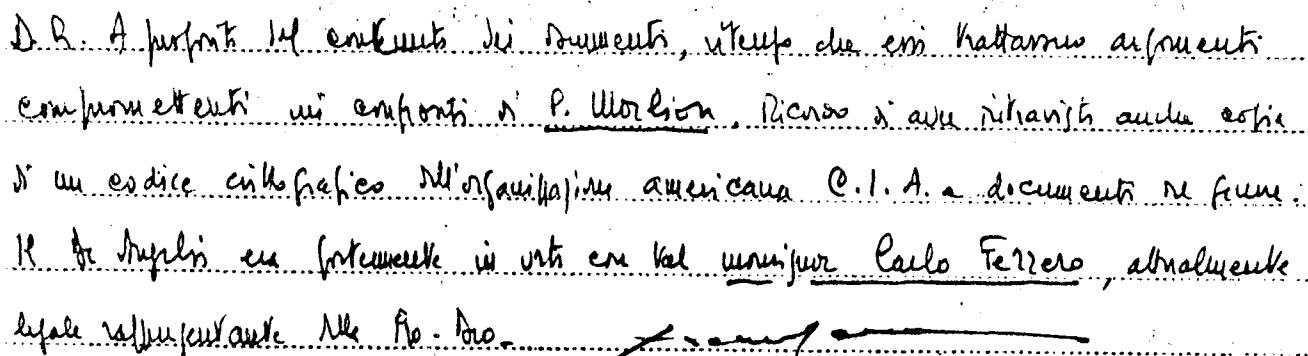 D.R. A proposito del contenuto dei documenti, ritengo che essi trattassero argomenti
compromettenti nei confronti di P. Morlion. Ricordo di aver intravisto anche copia
di un codice crittografico dell'organizzazione americana C.I.A. a documenti del genere.
Il De Angelis era fortemente in urto con tal monsignor Carlo Ferrero, attualmente
legale rappresentante della Pro-Deo.